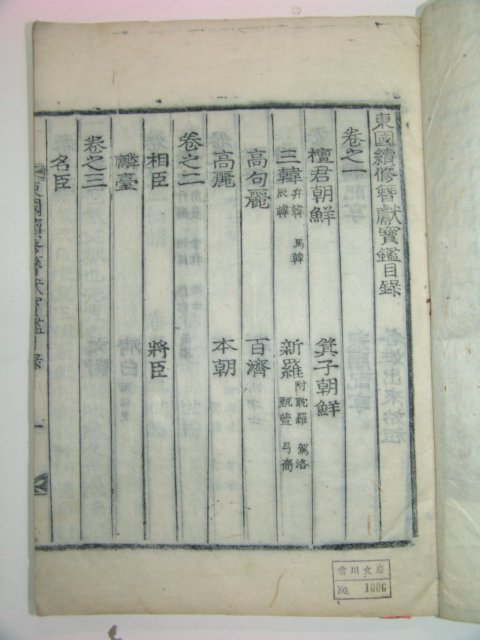 東國續修簪獻寶鑑目錄
卷之一
檀君朝鮮 箕子朝鮮
三韓 弁韓 馬韓 辰韓 新羅 附 耽羅 駕洛 甄萱 弓裔
高句麗 百濟
高麗 本朝
卷之二
相臣 將臣
麟臺
卷之三
名臣
雲川文庫
No. 1006